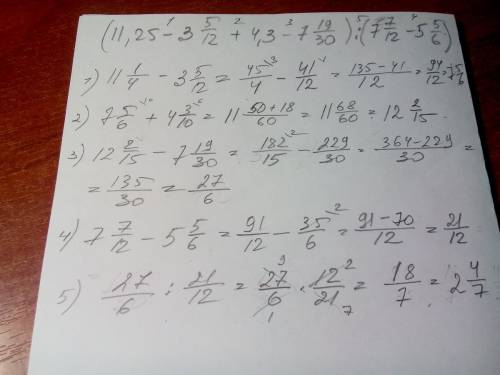 (11,25 - 3 5/12 + 4,3 - 7 19/30) : (7 7/12 - 5 5/6)
1) 11 1/4 - 3 5/12 = 45/4 - 41/12 = (135-41)/12 = 94/12 = 7 5/6
2) 7 5/6 + 4 3/10 = 11 (50+18)/60 = 11 68/60 = 12 2/15
3) 12 2/15 - 7 19/30 = 182/15 - 229/30 = (364-229)/30 =
= 135/30 = 27/6
4) 7 7/12 - 5 5/6 = 91/12 - 35/6 = (91-70)/12 = 21/12
5) 27/6 : 21/12 = 27/6 · 12/21 = 18/7 = 2 4/7